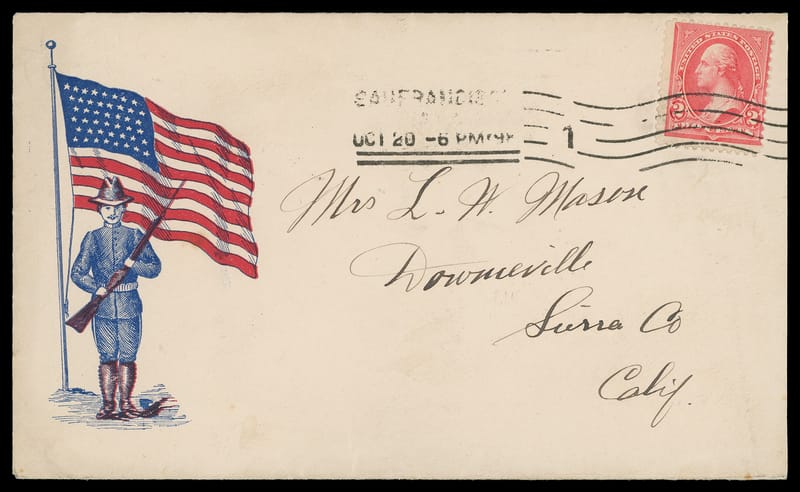 UNITED STATES POSTAGE
2 2
TWO CENTS
SAN FRANCISCO
OCT 20 -6 PM
1
Mrs L. W. Mason
Downieville
Sierra Co
Calif.